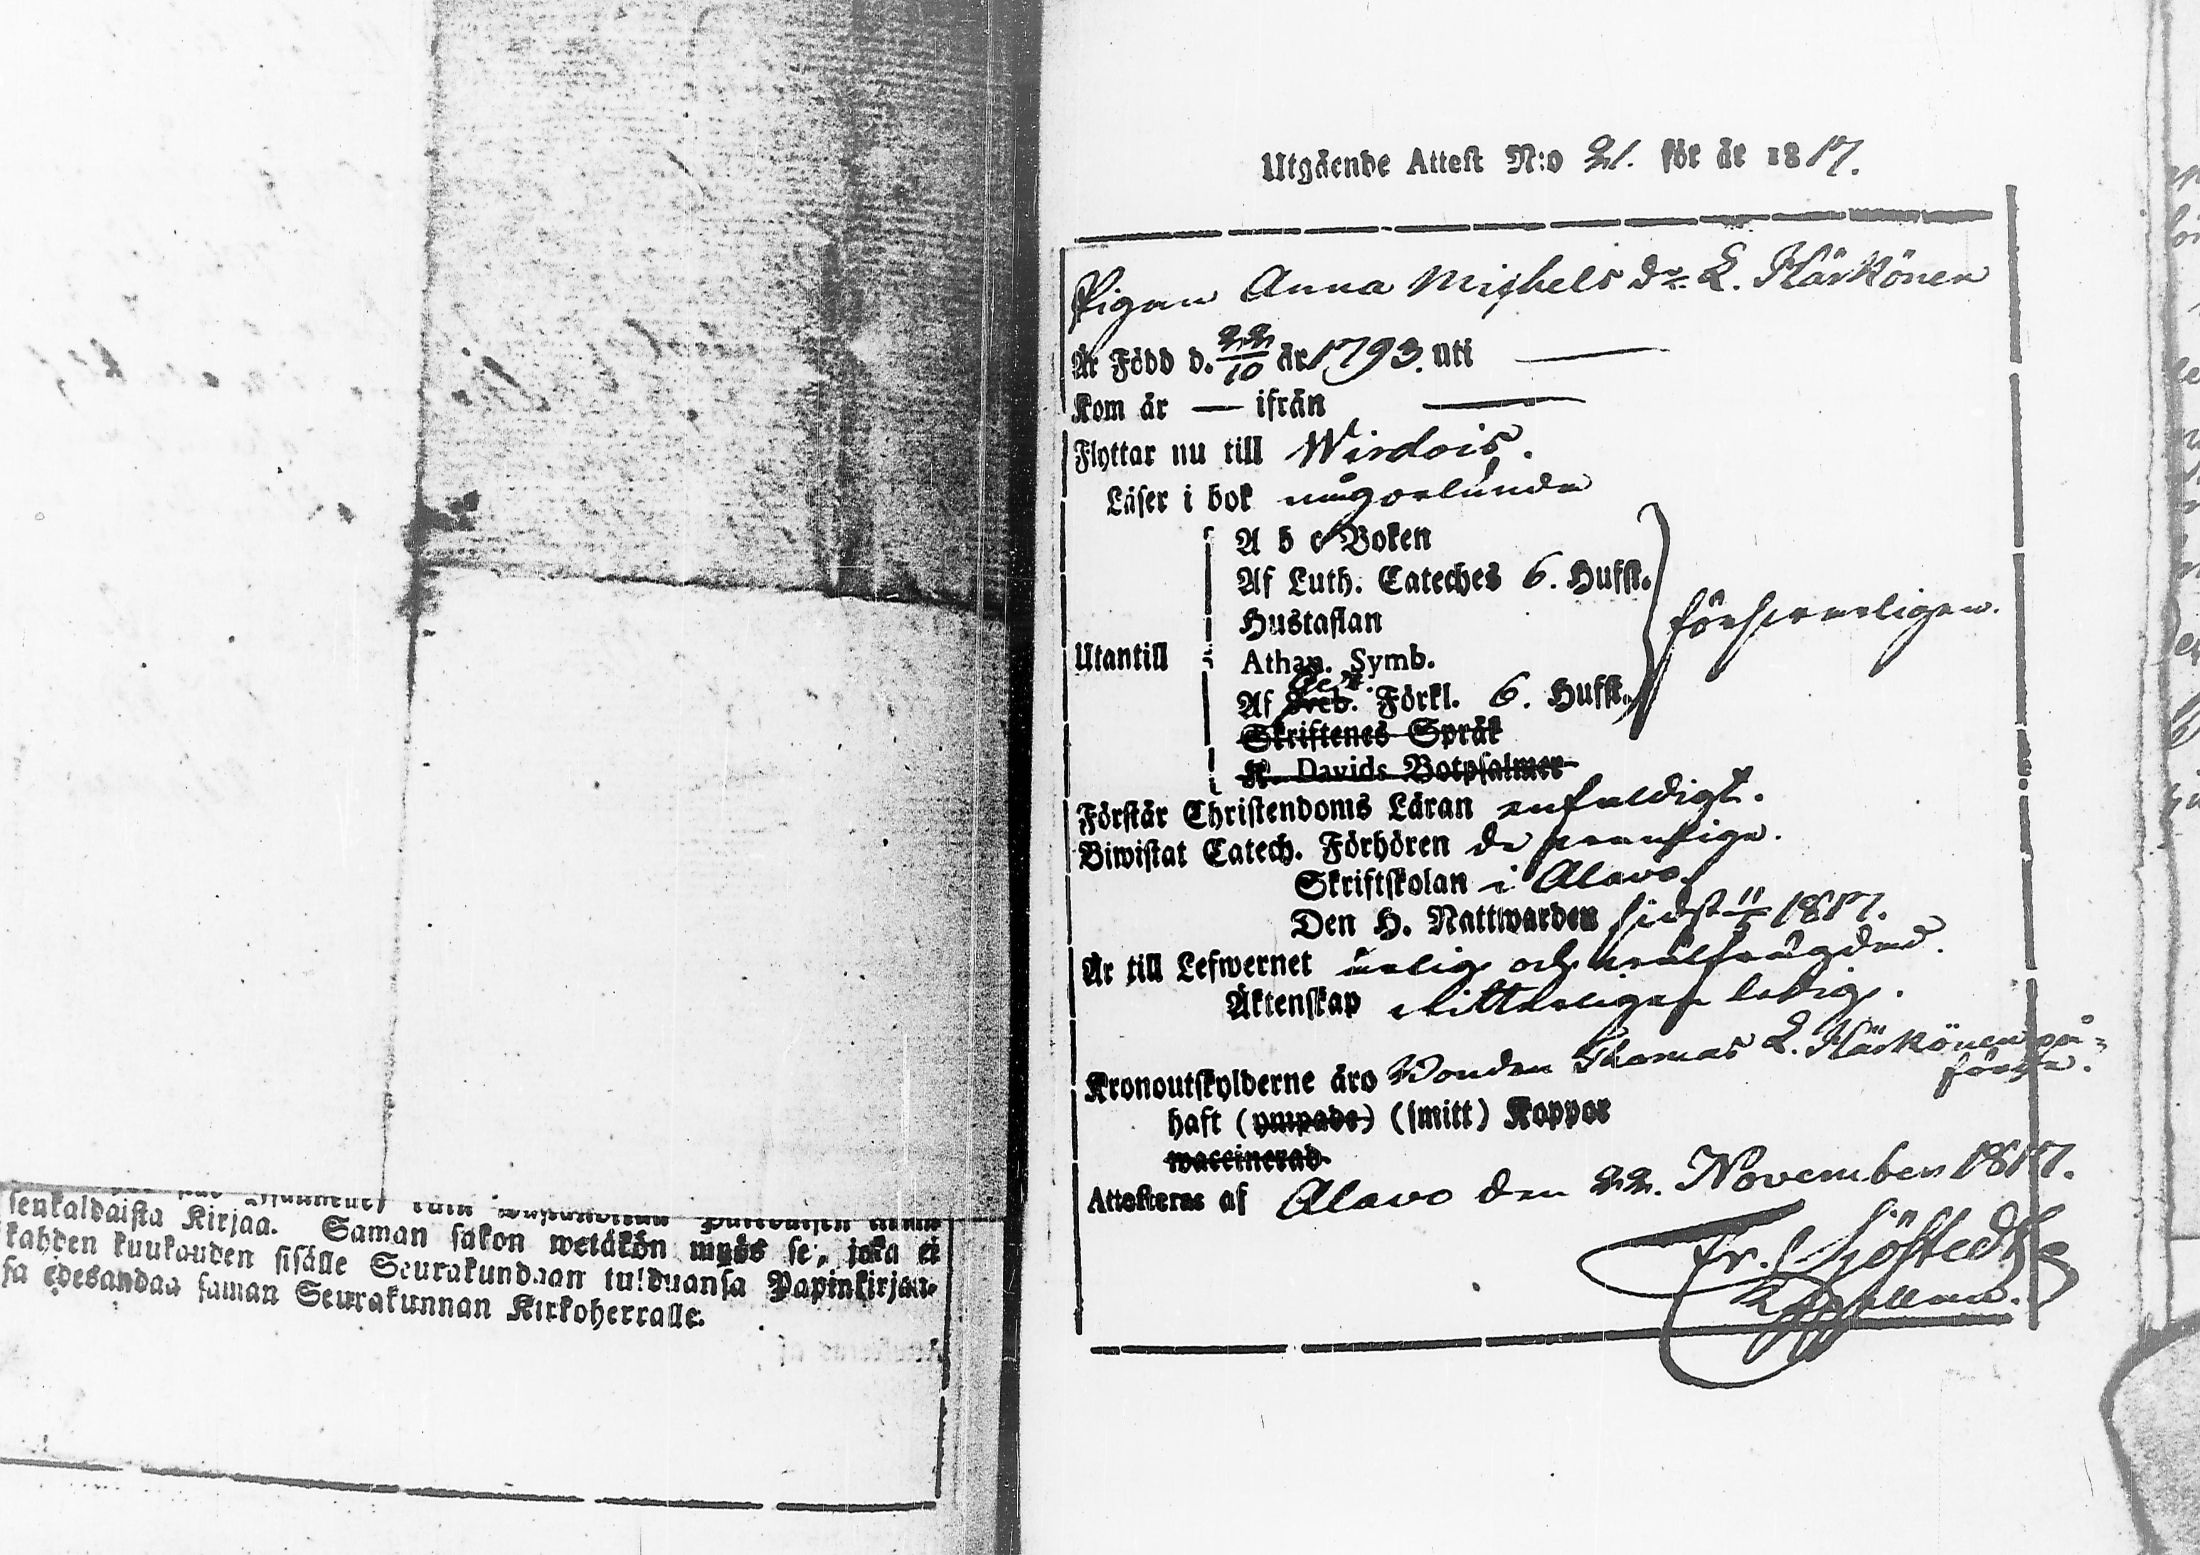 senkaldaista Kirjaa. Saman sakon wetäkön myös se, joka ei
kahden kuukauden sisälle Seurakundaan tulduansa Papinkirjaan-
sa edesandaa saman Seurakunnan Kirkoherralle.
Utgående Attest N:o 21. för år 1817.
Pigan Anna Michels dr. L. Härkönen
Är Född d. 22/10 år 1793. uti —
Kom år — ifrån —
Flyttar nu till Wirdois.
Läser i bok någorlunda
A b c Boken
Af Luth. Cateches 6. Hufst.
Hustaflan
försvarligen.
Utantill
Athan. Symb.
Af Förkl. 6. Hufst.
Skriftenes Språk
K. Davids Botpsalmer
Förstår Christendoms Läran enfaldigt.
Biwistat Catech. Förhören de
Skriftskolan i Alavo.
Den H. Nattwarden sidst 1817.
Är till Lefwernet ärlig och wälfrägdad.
Äktenskap ledig.
Kronoutskylderne äro Bonden Thomas L. Härkönen på-
förde.
haft (ympade) (smitt) Koppor
waccinerad
Attesteras af Alavo den 22. November 1817.
Fr. Sjöstedt
Capellan.